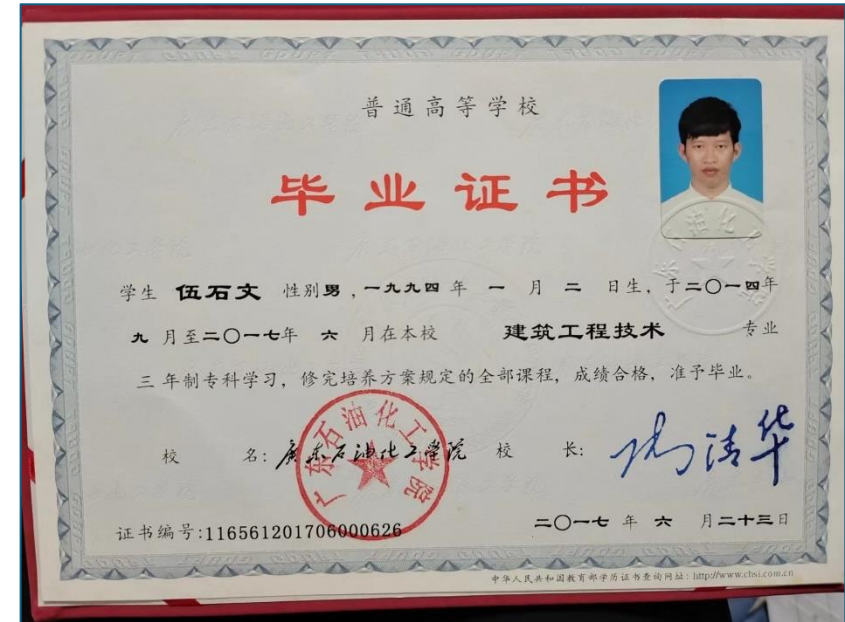 普通高等学校
毕业证书
学生 伍石文 性别男，一九九四年 一 月 二 日生，于二〇一四年
九 月至二〇一七年 六 月在本校 建筑工程技术 专业
三 年制专科学习，修完培养方案规定的全部课程，成绩合格，准予毕业。
校 名：广东石油化工学院 校 长：
广东石油化工学院
证书编号:116561201706000626
二〇一七 年 六 月二十三日
中华人民共和国教育部学历证书查询网址：http://www.chsi.com.cn